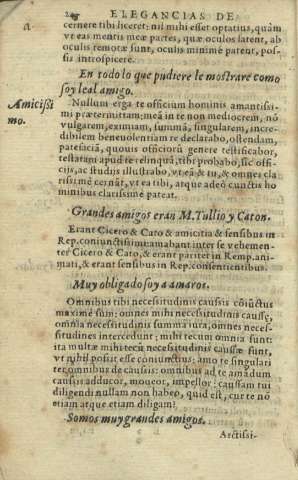 ELEGANCIAS DE
cernere tibi liceret: nil mihi esset optatius, quàm
vt eas mentis meæ partes, quæ oculos latent, ab
oculis remotæ sunt, oculis minimè pateant, pos-
sis introspicere.
En todo lo que pudiere le mostrare como
soy leal amigo.
Amicißi
mo.
Nullum erga te officium hominis amantissi-
mi prætermittam: meã in te non mediocrem, nõ
vulgarem, eximiam, summã, singularem, incre-
dibilem beneuolentiam te declarabo, ostendam,
patefaciã, quouis officiorũ genere testificabor,
testatam apud te relinquã, tibi probabo, sic offi-
ciis, ac studiis illustrabo, vt eã & tu, & omnes cla
rissimè cernãt, vt ea tibi, atque adeò cunctis ho
minibus clarissimè pateat.
Grandes amigos eran M. Tullio y Caton.
Erant Cicero & Cato & amicitia & sensibus in
Rep. coniunctissimi: amabant inter se vehemen-
ter Cicero & Cato, & erant pariter in Remp. ani-
mati, & erant sensibus in Rep. consentientibus.
Muy obligado soy a amaros.
Omnibus tibi necessitudinis caussis cõiũctus
maximè sum: omnes mihi necessitudinis caussæ,
omnia necessitudinis summa iura, omnes neces-
situdines intercedunt: mihi tecum omnia sunt:
ita multæ mihi tecũ necessitudinis caussæ sunt,
vt nihil possit esse coniunctius: amo te singulari
ter omnibus de caussis: omnibus ad te amãdum
caussis adducor, moueor, impellor: caussam tui
diligendi nullam non habeo, quid est, cur te nõ
etiam atque etiam diligam?
Somos muy grandes amigos.
Arctissi-